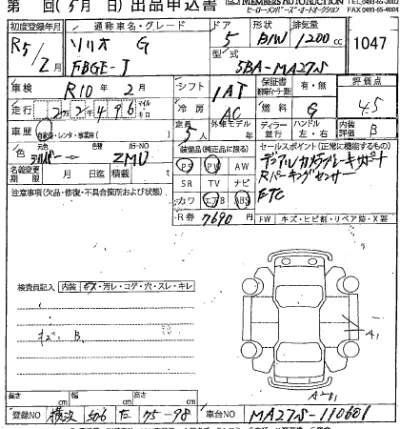 第 回(5月 日)出品申込書 MEMBERS AUTO AUCTION TEL
FAX 0493-65-4004
初度登録年月 通称車名・グレード ドア 形状 排気量
R5/2月 ソリオ G 5 B/W 1200cc 1047
FBGE-J 型式 5BA-MA27S
車検 R10年2月 シフト IAT 保証書 有・無 評価点
走行 2万2千496 マイル キロ 冷房 AC 燃料 G 4.5
車歴 自家用・レンタ・事業用( ) 定員 5人 外車モデル年 ディーラー 並行 ハンドル 左・右 内装評価 B
色 元色 シルバー 色替 カラーNO ZMU 装備品(純正品に限る) セールスポイント(正常に機能するもの)
名義変更期限 月 日迄 積載 t PS PW AW デュアルカメラブレーキサポート
注意事項(欠品・修復・不具合箇所および状態) SR TV ナビ Rパーキングセンサー
カワ エアB ABS ETC
R券 7690円 FW キズ・ヒビ割・リペア跡・X要
検査員記入 内装 キズ・汚レ・コゲ・穴・スレ・キレ
キズ B
A1
長さ cm 幅 cm 高さ cm
登録NO 横浜 506 た 75-98 車台NO MA27S-110601